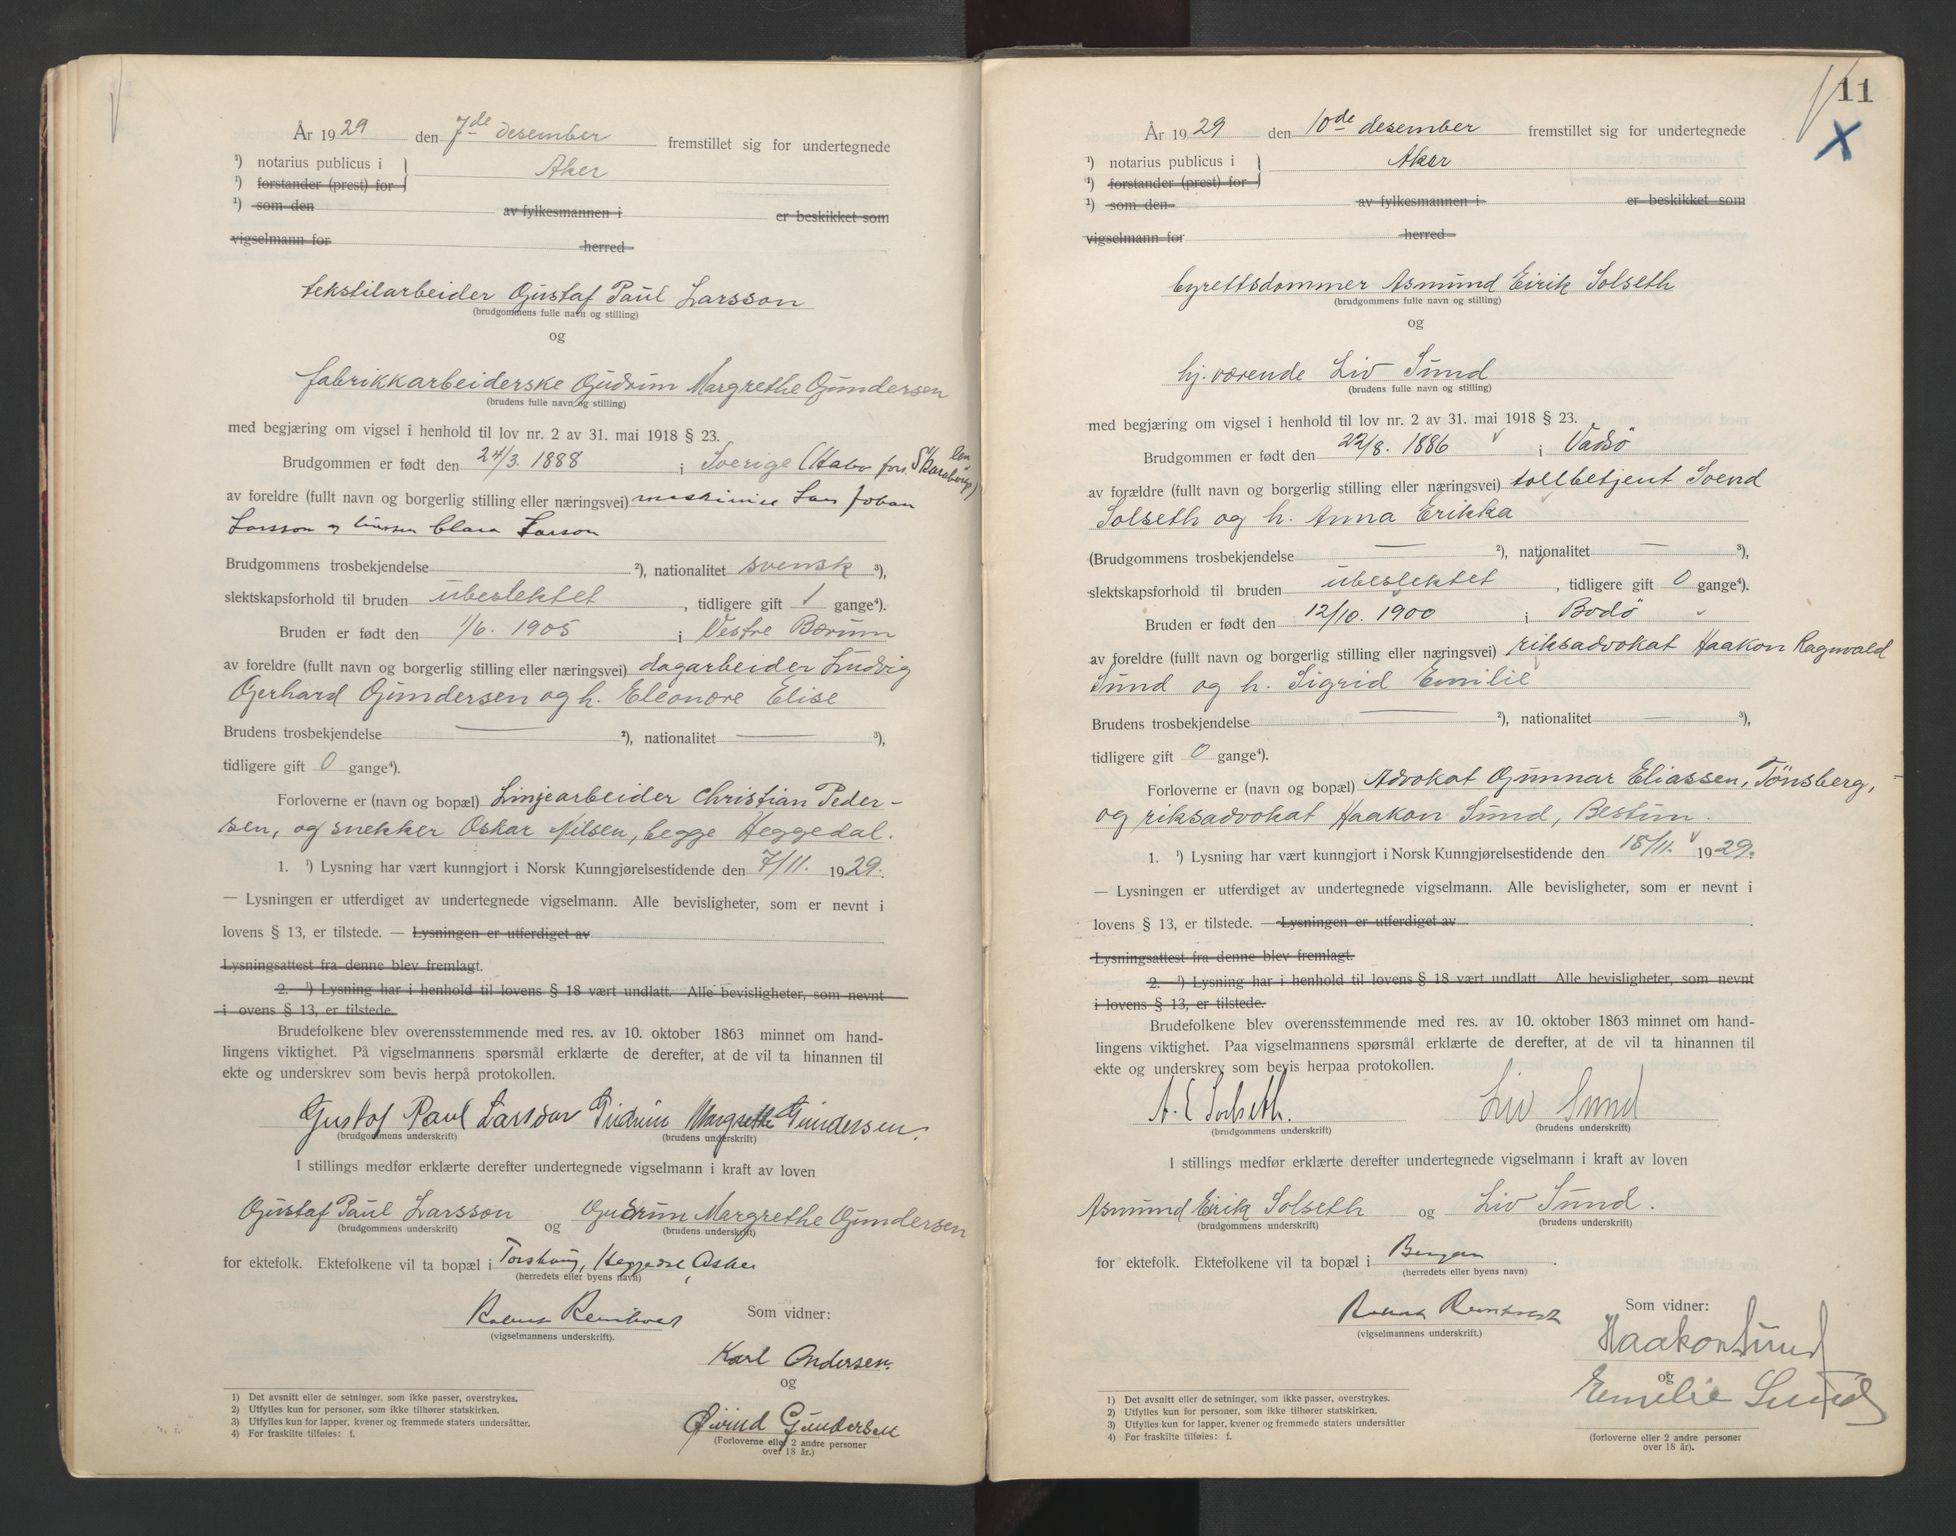 År 1929 den 7de desember fremstillet sig for undertegnede
¹) notarius publicus i Aker
¹) forstander (prest) for
¹) som den av fylkesmannen i er beskikket som
vigselmann for herred
tekstilarbeider Gustaf Paul Larsson
(brudgommens fulle navn og stilling)
og
fabrikkarbeiderske Gudrun Margrethe Gundersen
(brudens fulle navn og stilling)
med begjæring om vigsel i henhold til lov nr. 2 av 31. mai 1918 § 23.
Brudgommen er født den 24/3. 1888 i Sverige (Habo fors. Skaraborgs len)
av foreldre (fullt navn og borgerlig stilling eller næringsvei) maskinist Lars Johan
Larsson og Clara Larson
Brudgommens trosbekjendelse ²), nationalitet svensk ³),
slektskapsforhold til bruden ubeslektet, tidligere gift 1 gange⁴).
Bruden er født den 1/6. 1905 i Vestre Bærum
av foreldre (fullt navn og borgerlig stilling eller næringsvei) dagarbeider Ludvig
Gerhard Gundersen og h. Eleonore Elise
Brudens trosbekjendelse — ²), nationalitet — ³),
tidligere gift 0 gange⁴).
Forloverne er (navn og bopæl) Linjearbeider Christian Peder-
sen, og snekker Oskar Nilsen, begge Heggedal.
1. ¹) Lysning har vært kunngjort i Norsk Kunngjørelsestidende den 7/11. 1929.
— Lysningen er utferdiget av undertegnede vigselmann. Alle bevisligheter, som er nevnt i
lovens § 13, er tilstede. — Lysningen er utferdiget av
Lysningsattest fra denne blev fremlagt.
2. ¹) Lysning har i henhold til lovens § 18 vært undlatt. Alle bevisligheter, som nevnt
i ovens § 13, er tilstede.
Brudefolkene blev overensstemmende med res. av 10. oktober 1863 minnet om hand-
lingens viktighet. På vigselmannens spørsmål erklærte de derefter, at de vil ta hinannen til
ekte og underskrev som bevis herpå protokollen.
Gustaf Paul Larsson Gudrun Margrethe Gundersen.
(brudgommens underskrift) (brudens underskrift)
I stillings medfør erklærte derefter undertegnede vigselmann i kraft av loven
Gustaf Paul Larsson og Gudrun Margrethe Gundersen
(brudgommens underskrift) (brudens underskrift)
for ektefolk. Ektefolkene vil ta bopæl i Heggedal, Asker
(herredets eller byens navn)
Som vidner:
(vigselmannens underskrift).
Karl Andersen.
og
Øivind Gundersen
(Forloverne eller 2 andre personer
over 18 år.)
1) Det avsnitt eller de setninger, som ikke passer, overstrykes.
2) Utfylles kun for personer, som ikke tilhører statskirken.
3) Utfylles kun for lapper, kvener og fremmede staters undersåtter.
4) For fraskilte tilføies: f.
11
X
År 1929 den 10de desember fremstillet sig for undertegnede
¹) notarius publicus i Aker
¹) forstander (prest) for
¹) som den av fylkesmannen i er beskikket som
vigselmann for herred
byrettsdommer Asmund Eirik Solseth
(brudgommens fulle navn og stilling)
og
hj.værende Liv Sund
(brudens fulle navn og stilling)
med begjæring om vigsel i henhold til lov nr. 2 av 31. mai 1918 § 23.
Brudgommen er født den 22/8. 1886 i Vadsö
av forældre (fullt navn og borgerlig stilling eller næringsvei) tollbetjent Svend
Solseth og h. Anna Erikka
(Brudgommens trosbekjendelse — ²), nationalitet — ³),
slektskapsforhold til bruden ubeslektet, tidligere gift 0 gange⁴).
Bruden er født den 12/10. 1900 i Bodö
av foreldre (fullt navn og borgerlig stilling eller næringsvei) riksadvokat Haakon Ragnvald
Sund og h. Sigrid Emilie
Brudens trosbekjendelse — ²), nationalitet — ³),
tidligere gift 0 gange⁴).
Forloverne er (navn og bopæl) Advokat Gunnar Eliassen, Tönsberg,
og riksadvokat Haakon Sund, Bestum.
1. ¹) Lysning har vært kunngjort i Norsk Kunngjørelsestidende den 18/11. 1929.
— Lysningen er utferdiget av undertegnede vigselmann. Alle bevisligheter, som er nevnt i
lovens § 13, er tilstede. — Lysningen er utferdiget av
Lysningsattest fra denne blev fremlagt.
2. ¹) Lysning har i henhold til lovens § 18 vært undlatt. Alle bevisligheter, som nevnt
i lovens § 13, er tilstede.
Brudefolkene blev overensstemmende med res. av 10. oktober 1863 minnet om hand-
lingens viktighet. Paa vigselmannens spørsmål erklærte de derefter, at de vil ta hinannen til
ekte og underskrev som bevis herpaa protokollen.
A. E. Solseth. Liv Sund
(brudgommens underskrift) (brudens underskrift)
I stillings medfør erklærte derefter undertegnede vigselmann i kraft av loven
Asmund Eirik Solseth og Liv Sund.
(brudgommens underskrift) (brudens underskrift)
for ektefolk. Ektefolkene vil ta bopæl i Bergen.
(herredets eller byens navn)
Som vidner:
(vigselmannens underskrift.)
Haakon Sund
og
Emelie Sund
(forloverne eller 2 andre personer
over 18 år).
1) Det avsnitt eller de setninger, som ikke passer, overstrykes.
2) Utfylles kun for personer, som ikke tilhører statskirken.
3) Utfylles kun for lapper, kvener og fremmede staters undersåtter
4) For fraskilte tilføies: f.